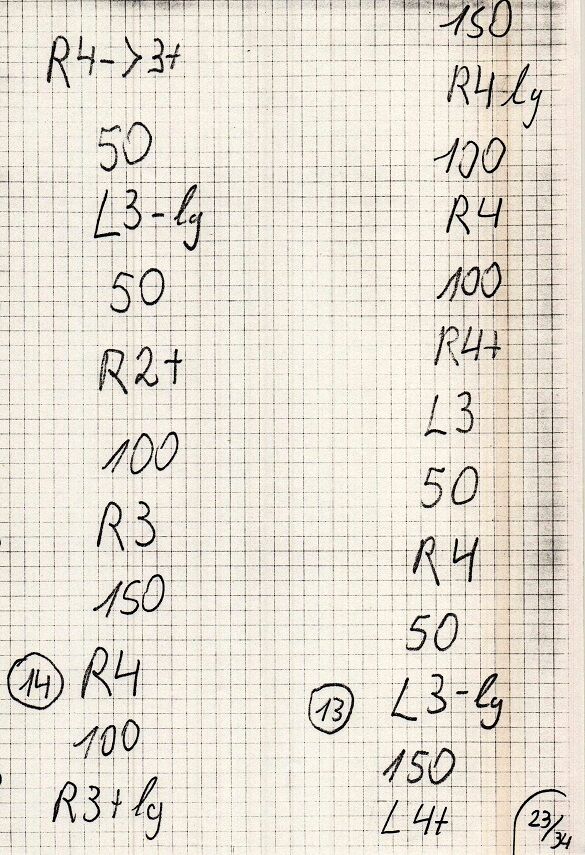 R4->3+
50
L3-lg
50
R2+
100
R3
150
14 R4
100
R3+lg
150
R4-lg
100
R4
100
R4+
L3
50
R4
50
13 L3-lg
150
L4+
23/34